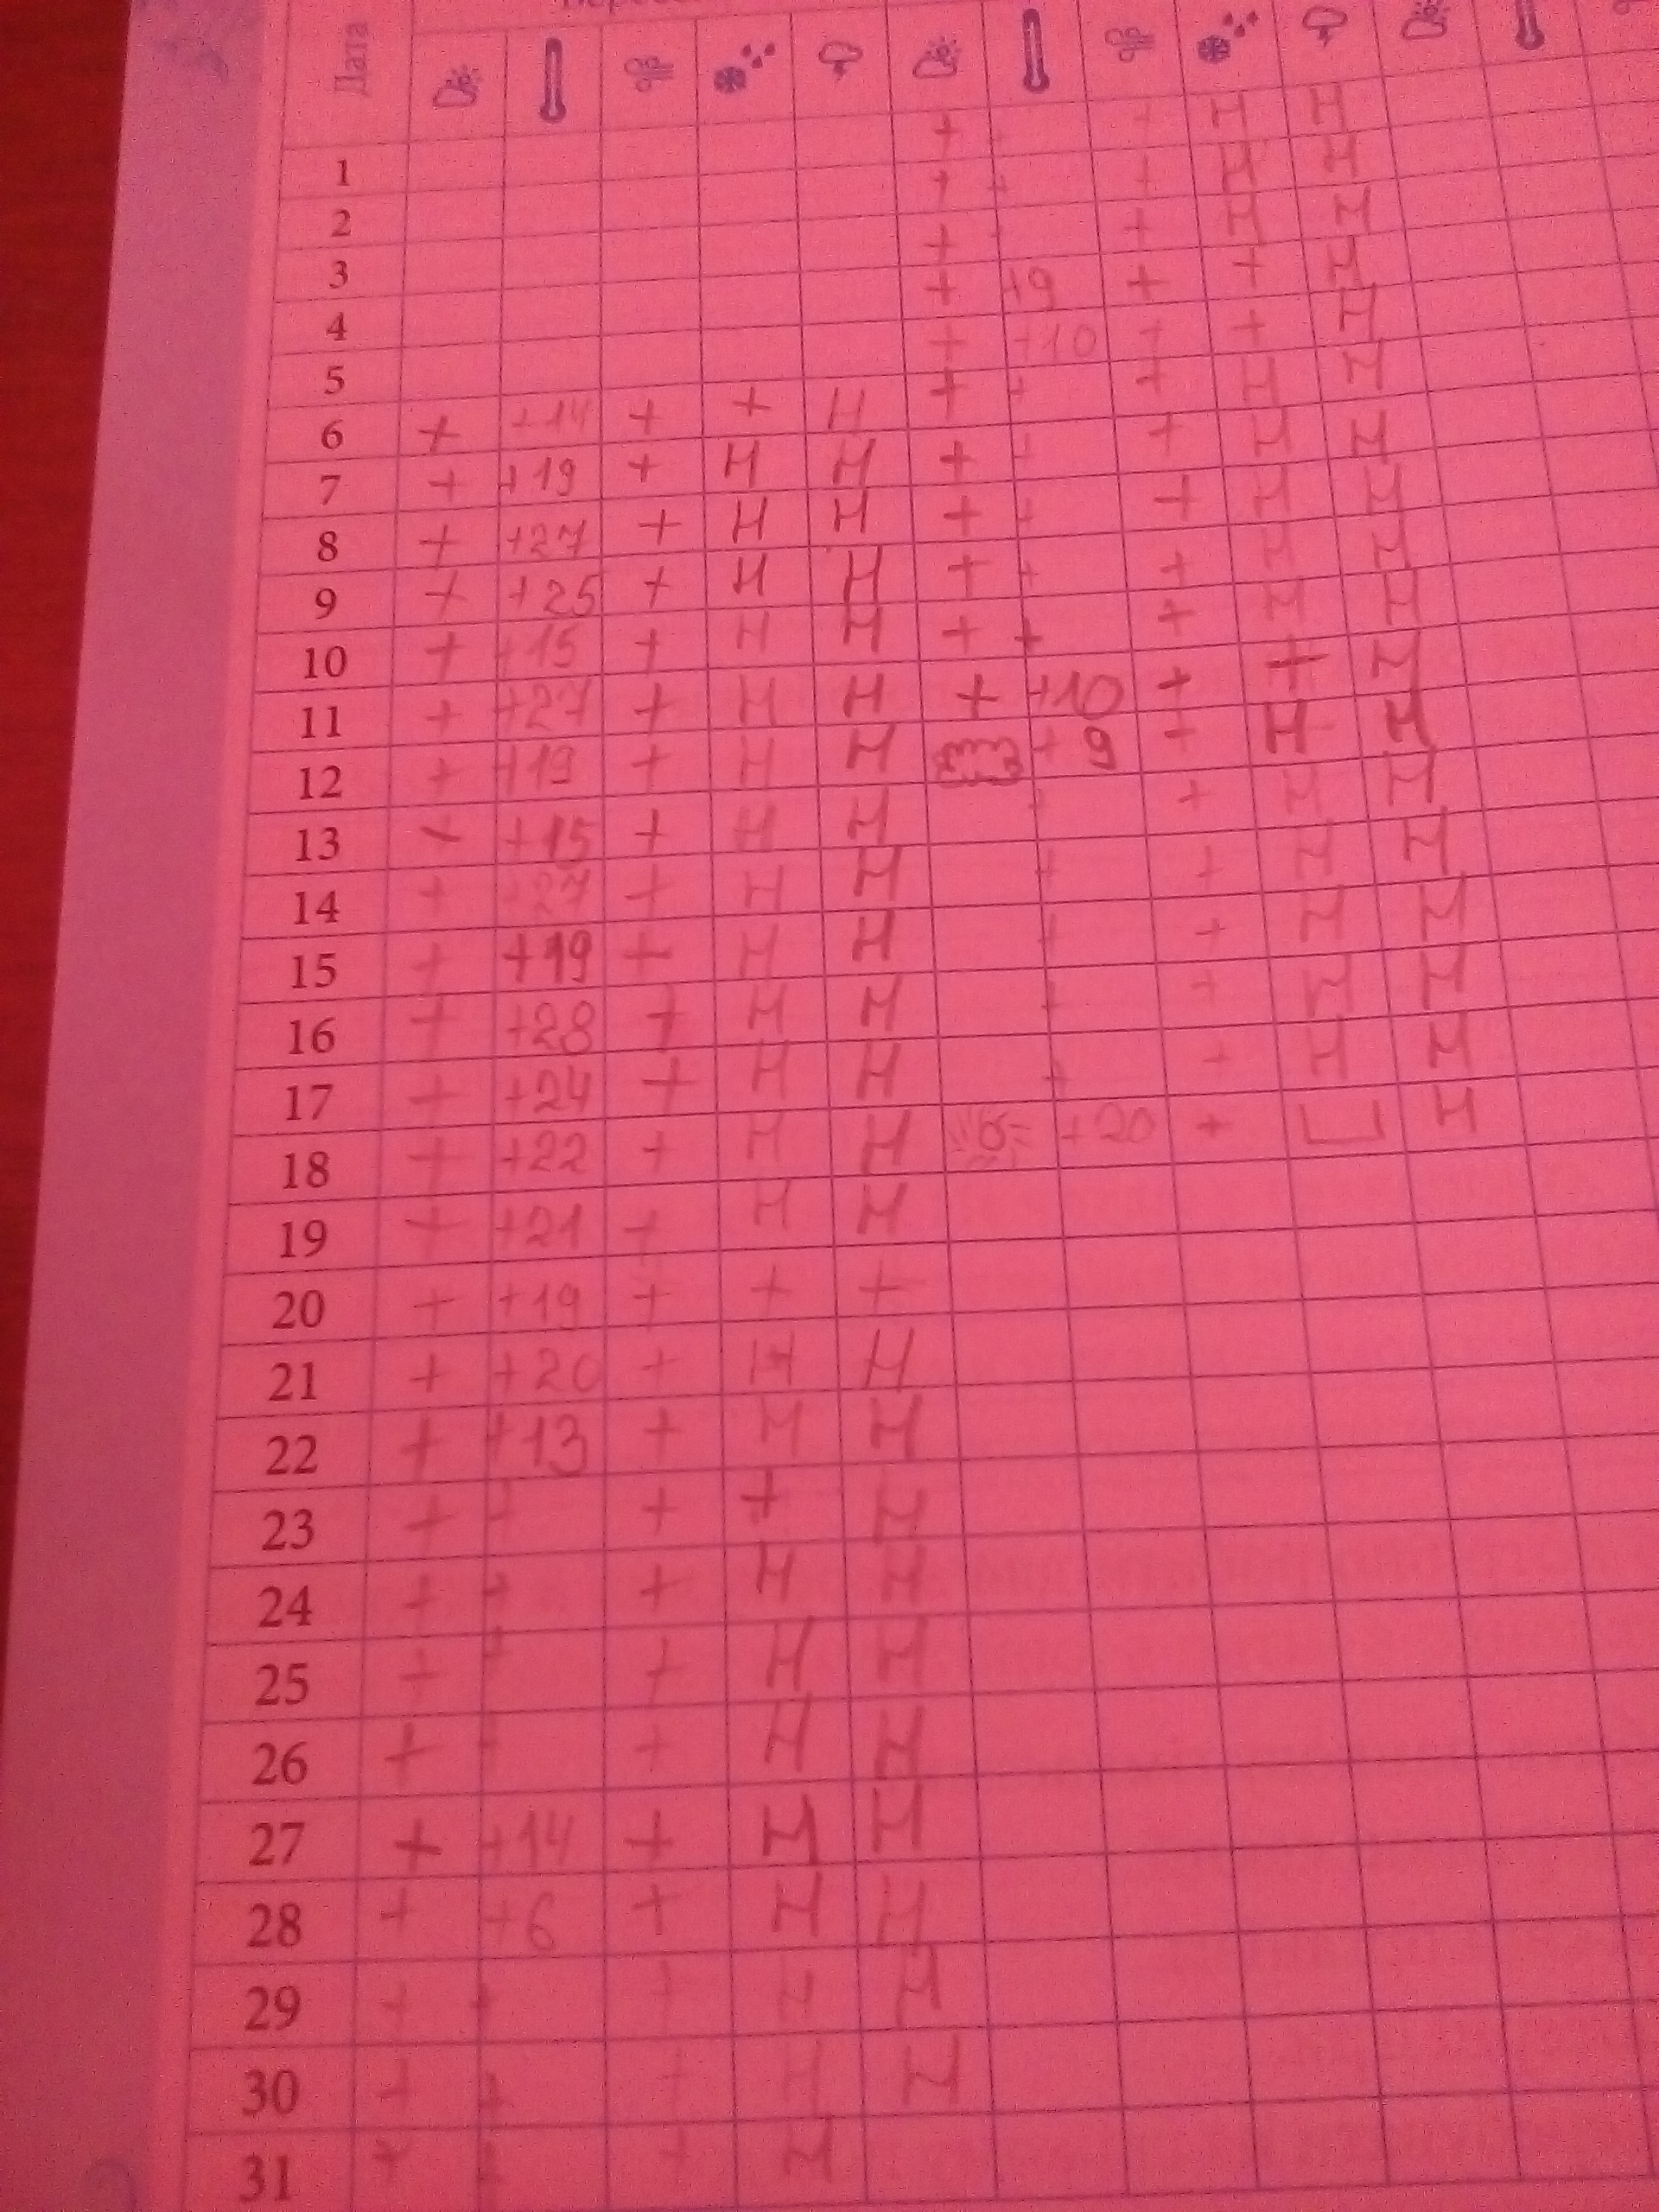 Дата
1 + + + Н Н
2 + + + Н Н
3 + + Н Н
4 + +9 + + Н
5 + +10 + + Н
6 + +14 + + Н + + + Н Н
7 + +19 + Н Н + + + Н Н
8 + +27 + Н Н + + + Н Н
9 + +25 + Н Н + + + Н Н
10 + +15 + Н Н + + + Н Н
11 + +27 + Н Н + +10 + + Н
12 + +19 + Н Н +9 + Н Н
13 + +15 + Н Н + + Н Н
14 + +27 + Н Н + + Н Н
15 + +19 + Н Н + + Н Н
16 + +28 + Н Н + + Н Н
17 + +24 + Н Н + + Н Н
18 + +22 + Н Н +20 + Н
19 + +21 + Н Н
20 + +19 + + +
21 + +20 + Н Н
22 + +13 + Н Н
23 + + + + Н
24 + + + Н Н
25 + + + Н Н
26 + + + Н Н
27 + +14 + Н Н
28 + +6 + Н Н
29 + + + Н Н
30 + + + Н Н
31 + + + Н